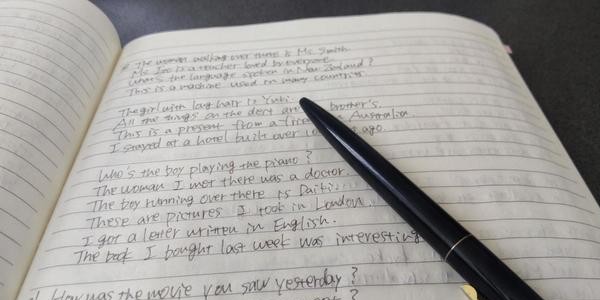 * The woman walking over there is Ms. Smith.
Ms. Ito is a teacher loved by everyone.
What's the language spoken in New Zealand?
This is a machine used in many countries.
The girl with long hair is Yuki.
All the things on the desk are brother's.
This is a present from a in Australia.
I stayed at a hotel built over ago.
Who's the boy playing the piano?
The woman I met there was a doctor.
The boy running over there is Daiki.
These are pictures I took in London.
I got a letter written in English.
The book I bought last week was interesting
How was the movie you saw yesterday?